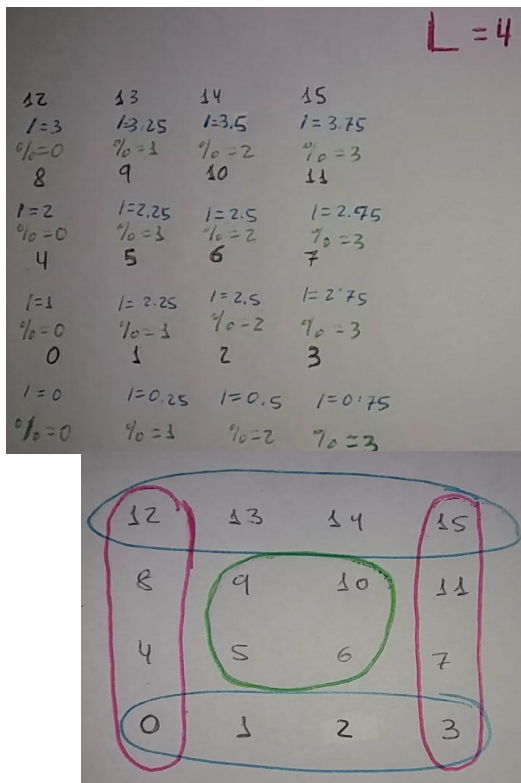 L = 4
12 13 14 15
/=3 /=3.25 /=3.5 /=3.75
%=0 %=1 %=2 %=3
8 9 10 11
/=2 /=2.25 /=2.5 /=2.75
%=0 %=1 %=2 %=3
4 5 6 7
/=1 /=2.25 /=2.5 /=2.75
%=0 %=1 %=2 %=3
0 1 2 3
/=0 /=0.25 /=0.5 /=0.75
%=0 %=1 %=2 %=3
12 13 14 15
8 9 10 11
4 5 6 7
0 1 2 3